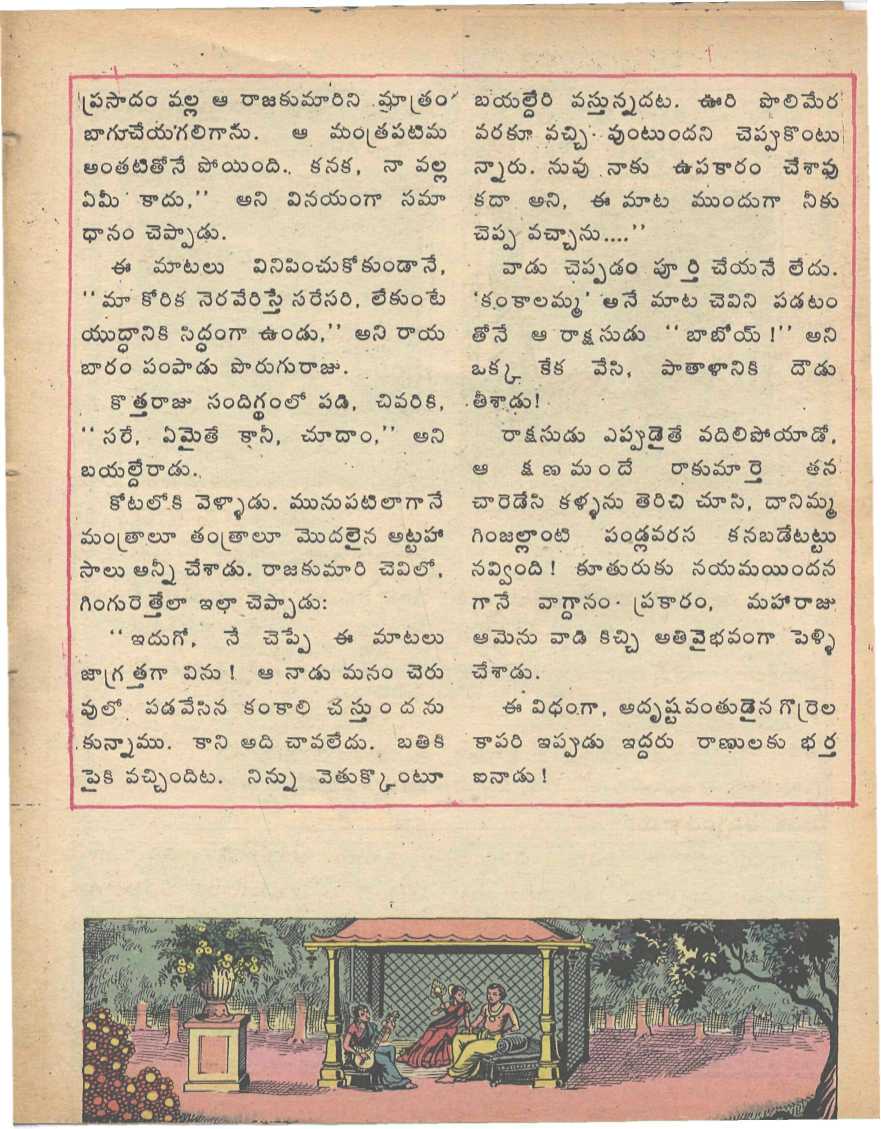 ప్రసాదం వల్ల ఆ రాజకుమారిని మాత్రం
బాగుచేయగలిగాను. ఆ మంత్రపటిమ
అంతటితోనే పోయింది. కనక, నా వల్ల
ఏమీ కాదు,'' అని వినయంగా సమా
ధానం చెప్పాడు.
ఈ మాటలు వినిపించుకోకుండానే,
''మా కోరిక నెరవేరిస్తే సరేసరి, లేకుంటే
యుద్ధానికి సిద్ధంగా ఉండు,'' అని రాయ
బారం పంపాడు పొరుగురాజు.
కొత్తరాజు సందిగ్థంలో పడి, చివరికి,
''సరే, ఏమైతే కానీ, చూదాం,'' అని
బయల్దేరాడు.
కోటలోకి వెళ్ళాడు. మునుపటిలాగానే
మంత్రాలూ తంత్రాలూ మొదలైన అట్టహా
సాలు అన్నీ చేశాడు. రాజకుమారి చెవిలో,
గింగురెత్తేలా ఇలా చెప్పాడు:
''ఇదుగో, నే చెప్పే ఈ మాటలు
జాగ్రత్తగా విను! ఆ నాడు మనం చెరు
వులో పడవేసిన కంకాలి చస్తుందను
కున్నాము. కాని అది చావలేదు. బతికి
పైకి వచ్చిందిట. నిన్ను వెతుక్కొంటూ
బయల్దేరి వస్తున్నదట. ఊరి పొలిమేర
వరకూ వచ్చి వుంటుందని చెప్పుకొంటు
న్నారు. నువు నాకు ఉపకారం చేశావు
కదా అని, ఈ మాట ముందుగా నీకు
చెప్ప వచ్చాను....''
వాడు చెప్పడం పూర్తి చేయనే లేదు.
'కంకాలమ్మ' అనే మాట చెవిని పడటం
తోనే ఆ రాక్షసుడు ''బాబోయ్!'' అని
ఒక్క కేక వేసి, పాతాళానికి దౌడు
తీశాడు!
రాక్షసుడు ఎప్పుడైతే వదిలిపోయాడో,
ఆ క్షణమందే రాకుమార్తె తన
చారెడేసి కళ్ళను తెరిచి చూసి, దానిమ్మ
గింజల్లాంటి పండ్లవరస కనబడేటట్టు
నవ్వింది! కూతురుకు నయమయిందన
గానే వాగ్దానం ప్రకారం, మహారాజు
ఆమెను వాడి కిచ్చి అతివైభవంగా పెళ్ళి
చేశాడు.
ఈ విధంగా, అదృష్టవంతుడైన గొర్రెల
కాపరి ఇప్పుడు ఇద్దరు రాణులకు భర్త
ఐనాడు!